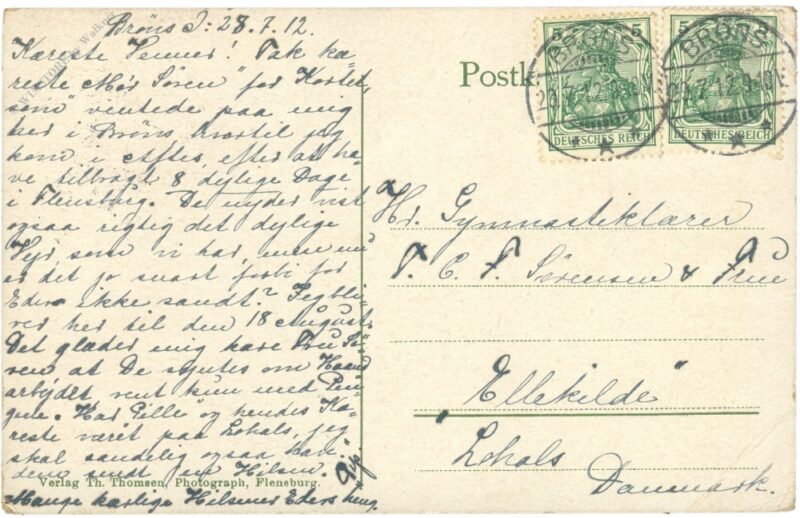 Bröns J: 28.7.12.
Kæreste Venner! Tak kæ-
reste "Mor Sören" for Kortet,
som ventede paa mig
her i Bröns hvortil jeg
kom i Aftes, efter at ha-
ve tilbragt 8 dejlige Dage
i Flensburg. De nyder vist
ogsaa rigtig det dejlige
Vejr, som vi har, men nu
er det jo snart forbi for
Eder ikke sandt? Jeg bli-
ver her til den 18 August.
Det glæder mig kære Fru Sö-
ren at De syntes om Haand
arbejdet vent kun med Pen-
gene. Har "Pille" og hendes Kæ-
reste været paa Lohals, jeg
skal sandelig ogsaa have
dem sendt en Hilsen.
Mange kærlige Hilsener Eders
Verlag Th. Thomsen, Photograph, Flensburg.
Postk
5 5
BRÖNS
28.7.12.
DEUTSCHES REICH
5
BRÖNS
7.12.
DEUTSCHES REICH
Hr. Gymnastiklærer
T. C. F. Sörensen & Frue
"Ellekilde"
Lohals
Danmark.